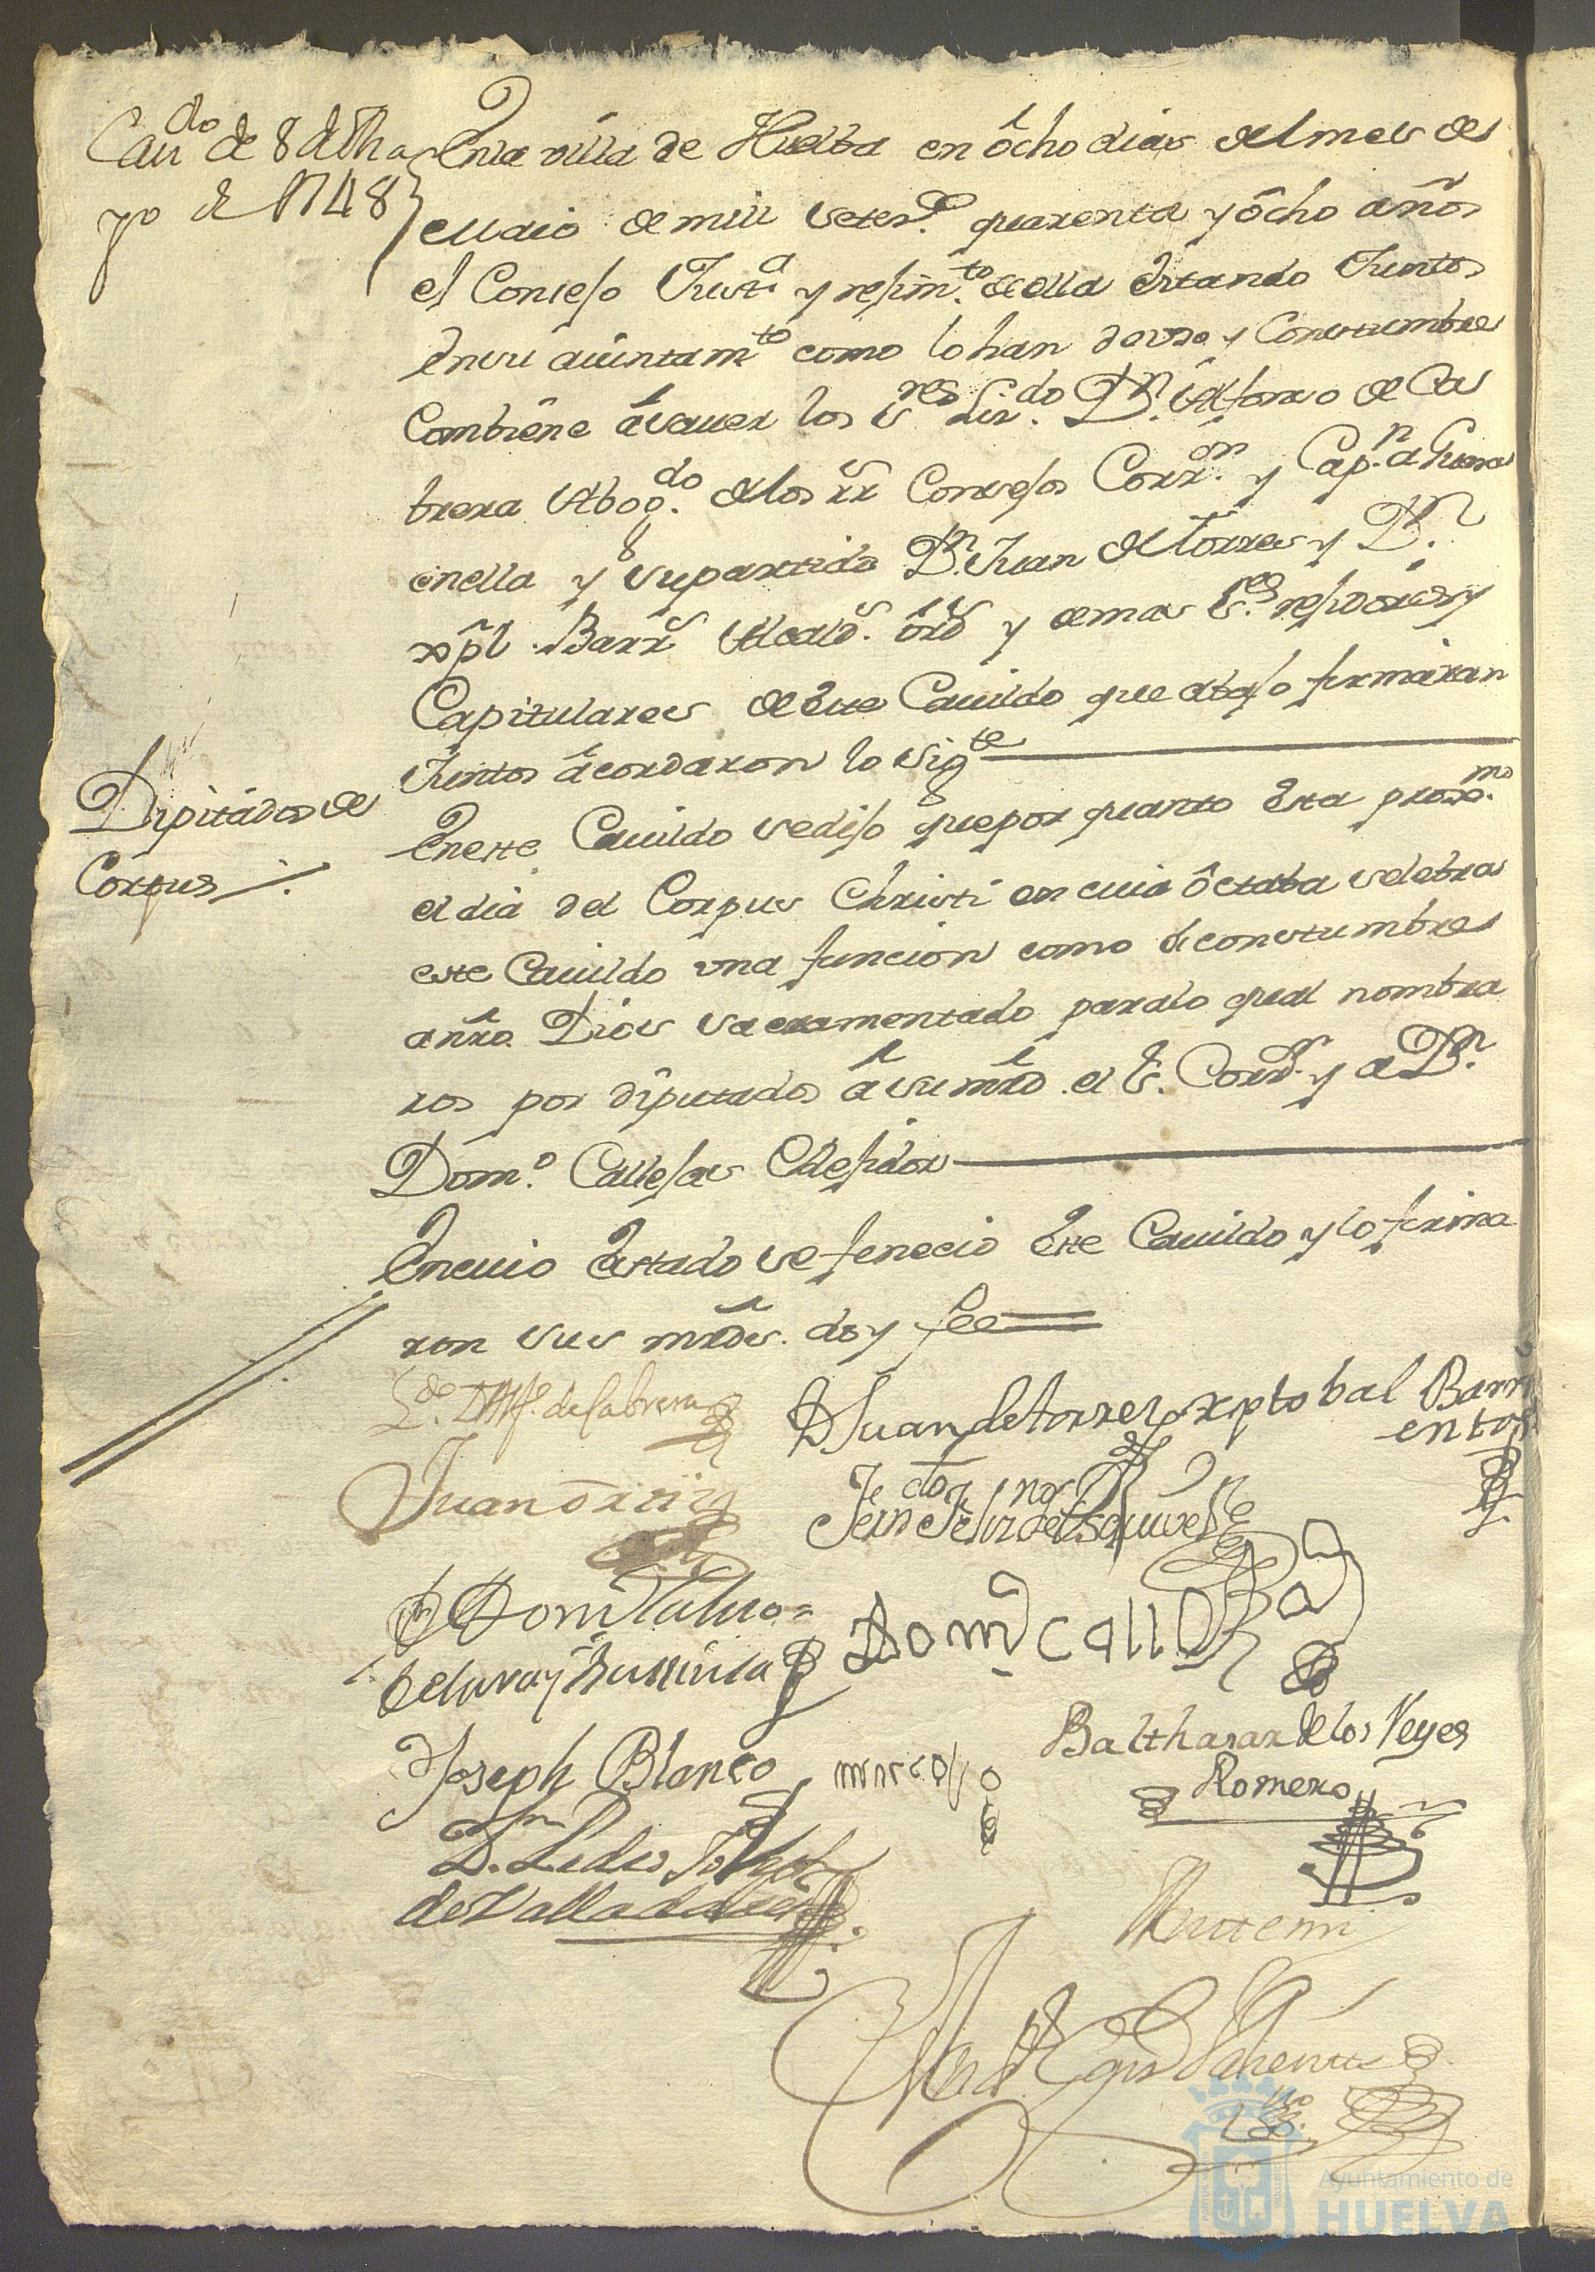 Caudo de 8 de Ma
yo de 1748
En la villa de Huelba en ôcho dias del mes de
Maio de mill setezos quarenta y ôcho años
el Consejo Justa y rejimto de ella estando Juntos
en su aiuntamto como lo han de vso y Constumbre
Combiene â sauer los sres Lizdo Dn Alfonso de Ca
brera Abogdo de los rs Consejos Corron y Capn a Guerra
en ella y su partido Dn Juan de Torres y Dn
xpl Barrs Alcalds ordos y demas ss rejidores y
Capitulares de este Cauildo que abajo firmaran
Juntos âcordaron lo sigte
Diputados de
Corpus
En este Cauildo se dijo que por quanto esta proxmo
el dia del Corpus Christi en cuia ôctaba selebra
este Cauildo vna funcion como de constumbre
a nro Dios sacramentado para lo qual nombra
ron por diputados â su mrd el s. Corror y a Dn
Domo Callejas Rejidor
En cuio estado se fenecio este Cauildo y lo firma
ron sus mrds. doy fee
Ldo Dn Alfo de Cabrera
D Juan de torres xptobal Barri
entos
Juan ôrtiz
de Esquivel
Domo Calleja
Joseph Blanco marcos
Balthasar de los Reyes
Romero
de Valladares
Ante mi
Ayuntamiento de
HUELVA